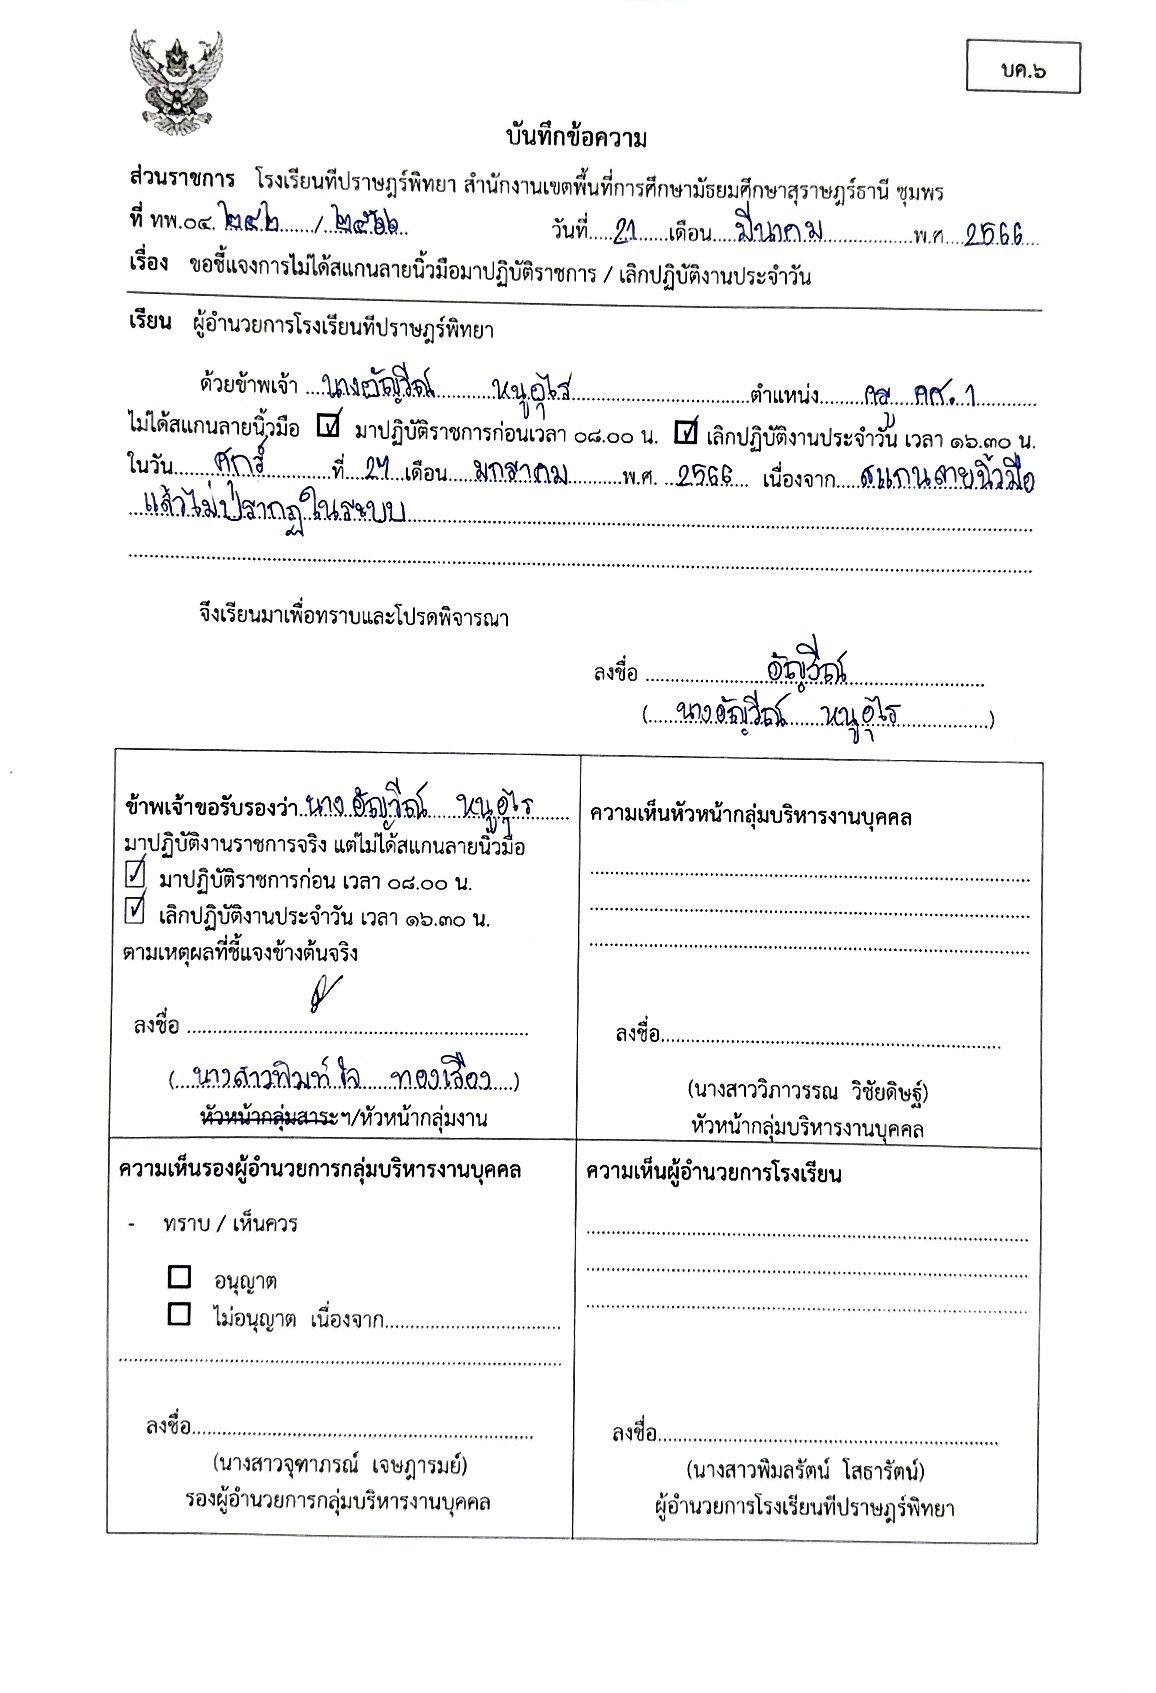 บค.๖
บันทึกข้อความ
ส่วนราชการ โรงเรียนทีปราษฎร์พิทยา สำนักงานเขตพื้นที่การศึกษามัธยมศึกษาสุราษฎร์ธานี ชุมพร
ที่ ทพ.๐๔. ๒๔๒ / ๒๕๖๖ วันที่ 21 เดือน มีนาคม พ.ศ. 2566
เรื่อง ขอชี้แจงการไม่ได้สแกนลายนิ้วมือมาปฏิบัติราชการ / เลิกปฏิบัติงานประจำวัน
เรียน ผู้อำนวยการโรงเรียนทีปราษฎร์พิทยา
ด้วยข้าพเจ้า นางอัญวีณ์ หนูอุไร ตำแหน่ง ครู คศ.1
ไม่ได้สแกนลายนิ้วมือ ☑ มาปฏิบัติราชการก่อนเวลา ๐๘.๐๐ น. ☑ เลิกปฏิบัติงานประจำวัน เวลา ๑๖.๓๐ น.
ในวัน ศุกร์ ที่ 27 เดือน มกราคม พ.ศ. 2566 เนื่องจาก สแกนลายนิ้วมือ
แล้วไม่ปรากฏในระบบ
จึงเรียนมาเพื่อทราบและโปรดพิจารณา
ลงชื่อ อัญวีณ์
(นางอัญวีณ์ หนูอุไร)
ข้าพเจ้าขอรับรองว่า นางอัญวีณ์ หนูอุไร
มาปฏิบัติงานราชการจริง แต่ไม่ได้สแกนลายนิ้วมือ
☑ มาปฏิบัติราชการก่อน เวลา ๐๘.๐๐ น.
☑ เลิกปฏิบัติงานประจำวัน เวลา ๑๖.๓๐ น.
ตามเหตุผลที่ชี้แจงข้างต้นจริง
ลงชื่อ
(นางสาวพิมพ์ใจ ทองเรือง)
หัวหน้ากลุ่มสาระฯ/หัวหน้ากลุ่มงาน
ความเห็นหัวหน้ากลุ่มบริหารงานบุคคล
ลงชื่อ
(นางสาววิภาวรรณ วิชัยดิษฐ์)
หัวหน้ากลุ่มบริหารงานบุคคล
ความเห็นรองผู้อำนวยการกลุ่มบริหารงานบุคคล
- ทราบ / เห็นควร
☐ อนุญาต
☐ ไม่อนุญาต เนื่องจาก
ลงชื่อ
(นางสาวจุฑาภรณ์ เจษฎารมย์)
รองผู้อำนวยการกลุ่มบริหารงานบุคคล
ความเห็นผู้อำนวยการโรงเรียน
ลงชื่อ
(นางสาวพิมลรัตน์ โสธารัตน์)
ผู้อำนวยการโรงเรียนทีปราษฎร์พิทยา